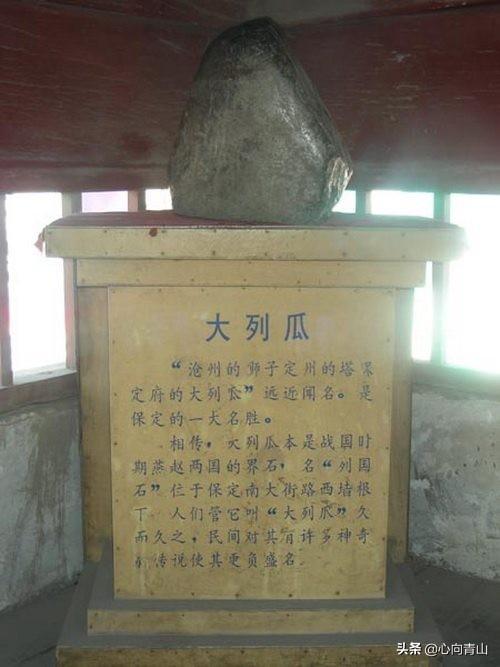 大列瓜
“沧州的狮子定州的塔保
定府的大列瓜”远近闻名。是
保定的一大名胜。
相传，大列瓜本是战国时
期燕赵两国的界石，名“列国
石”位于保定南大街路西墙根
下 人们管它叫“大列瓜”久
而久之，民间对其有许多神奇
的传说使其更负盛名
头条 @心向青山